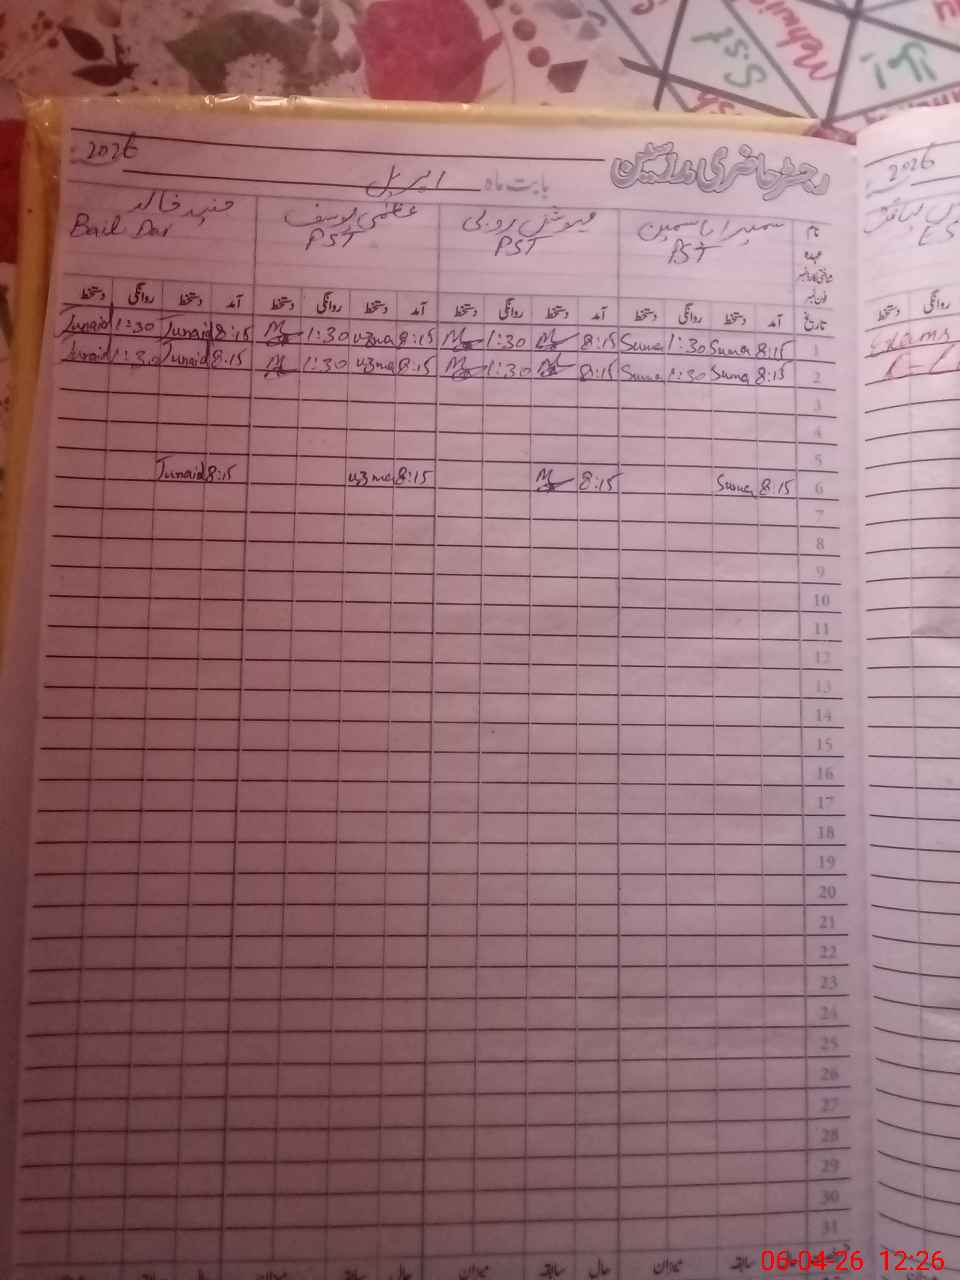 رجسٹر حاضری مدرسین
بابت ماہ اپریل 2026
نام سمیرا یاسمین مہوش روبی عظمیٰ یوسف جنید خالد
عہدہ PST PST PST Bail Dar
شناختی کارڈ نمبر
فون نمبر
تاریخ آمد دستخط روانگی دستخط آمد دستخط روانگی دستخط آمد دستخط روانگی دستخط آمد دستخط روانگی دستخط
1 8:15 Suma 1:30 Suma 8:15 1:30 8:15 uzma 1:30 8:15 Junaid 1:30 Junaid
2 8:15 Suma 1:30 Suma 8:15 1:30 8:15 uzma 1:30 8:15 Junaid 1:30 Junaid
3
4
5
6 8:15 Suma 8:15 8:15 uzma 8:15 Junaid
7
8
9
10
11
12
13
14
15
16
17
18
19
20
21
22
23
24
25
26
27
28
29
30
31
حال سابقہ میزان حال سابقہ میزان حال سابقہ
2026
روانگی دستخط
Exams
06-04-26 12:26